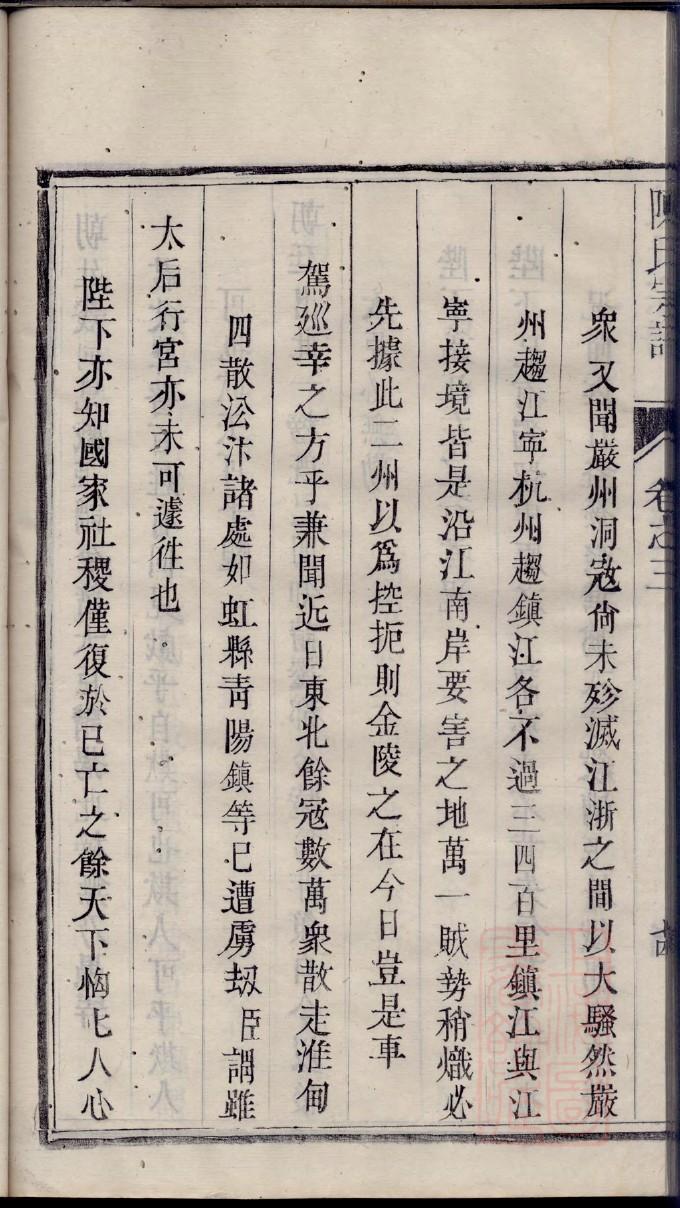 陳氏宗譜
卷之三
衆又聞嚴州洞宼尙未殄滅江浙之間以大騷然嚴
州趨江寧杭州趨鎮江各不過三四百里鎮江與江
寧接境皆是沿江南岸要害之地萬一賊勢稍熾必
先據此二州以爲控扼則金陵之在今日豈是車
駕廵幸之方乎兼聞近日東北餘冦數萬衆散走淮甸
四散㳂汴諸處如虹縣靑陽鎮等已遭虜刼臣謂雖
太后行宮亦未可遽徃也
陛下亦知國家社稷僅復於已亡之餘天下恟七人心